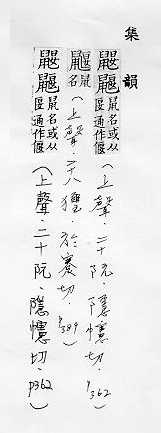 集韻
鼴鼴鼠名或从匽通作偃(上聲.二十阮.隱幰切.P362)
鼴鼠名(上聲.二十八獮.於蹇切.P389)
鼴鼴鼠名或从匽通作偃(上聲.二十阮.隱幰切.P362)